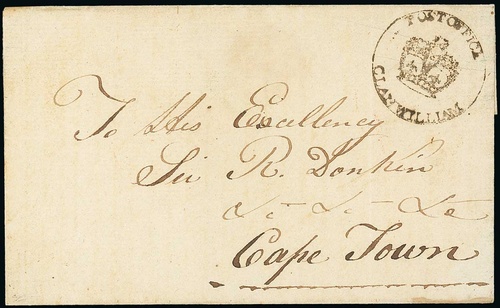 POST OFFICE
CLANWILLIAM
To His Excellency
Sir R. Donkin
&c &c &c
Cape Town